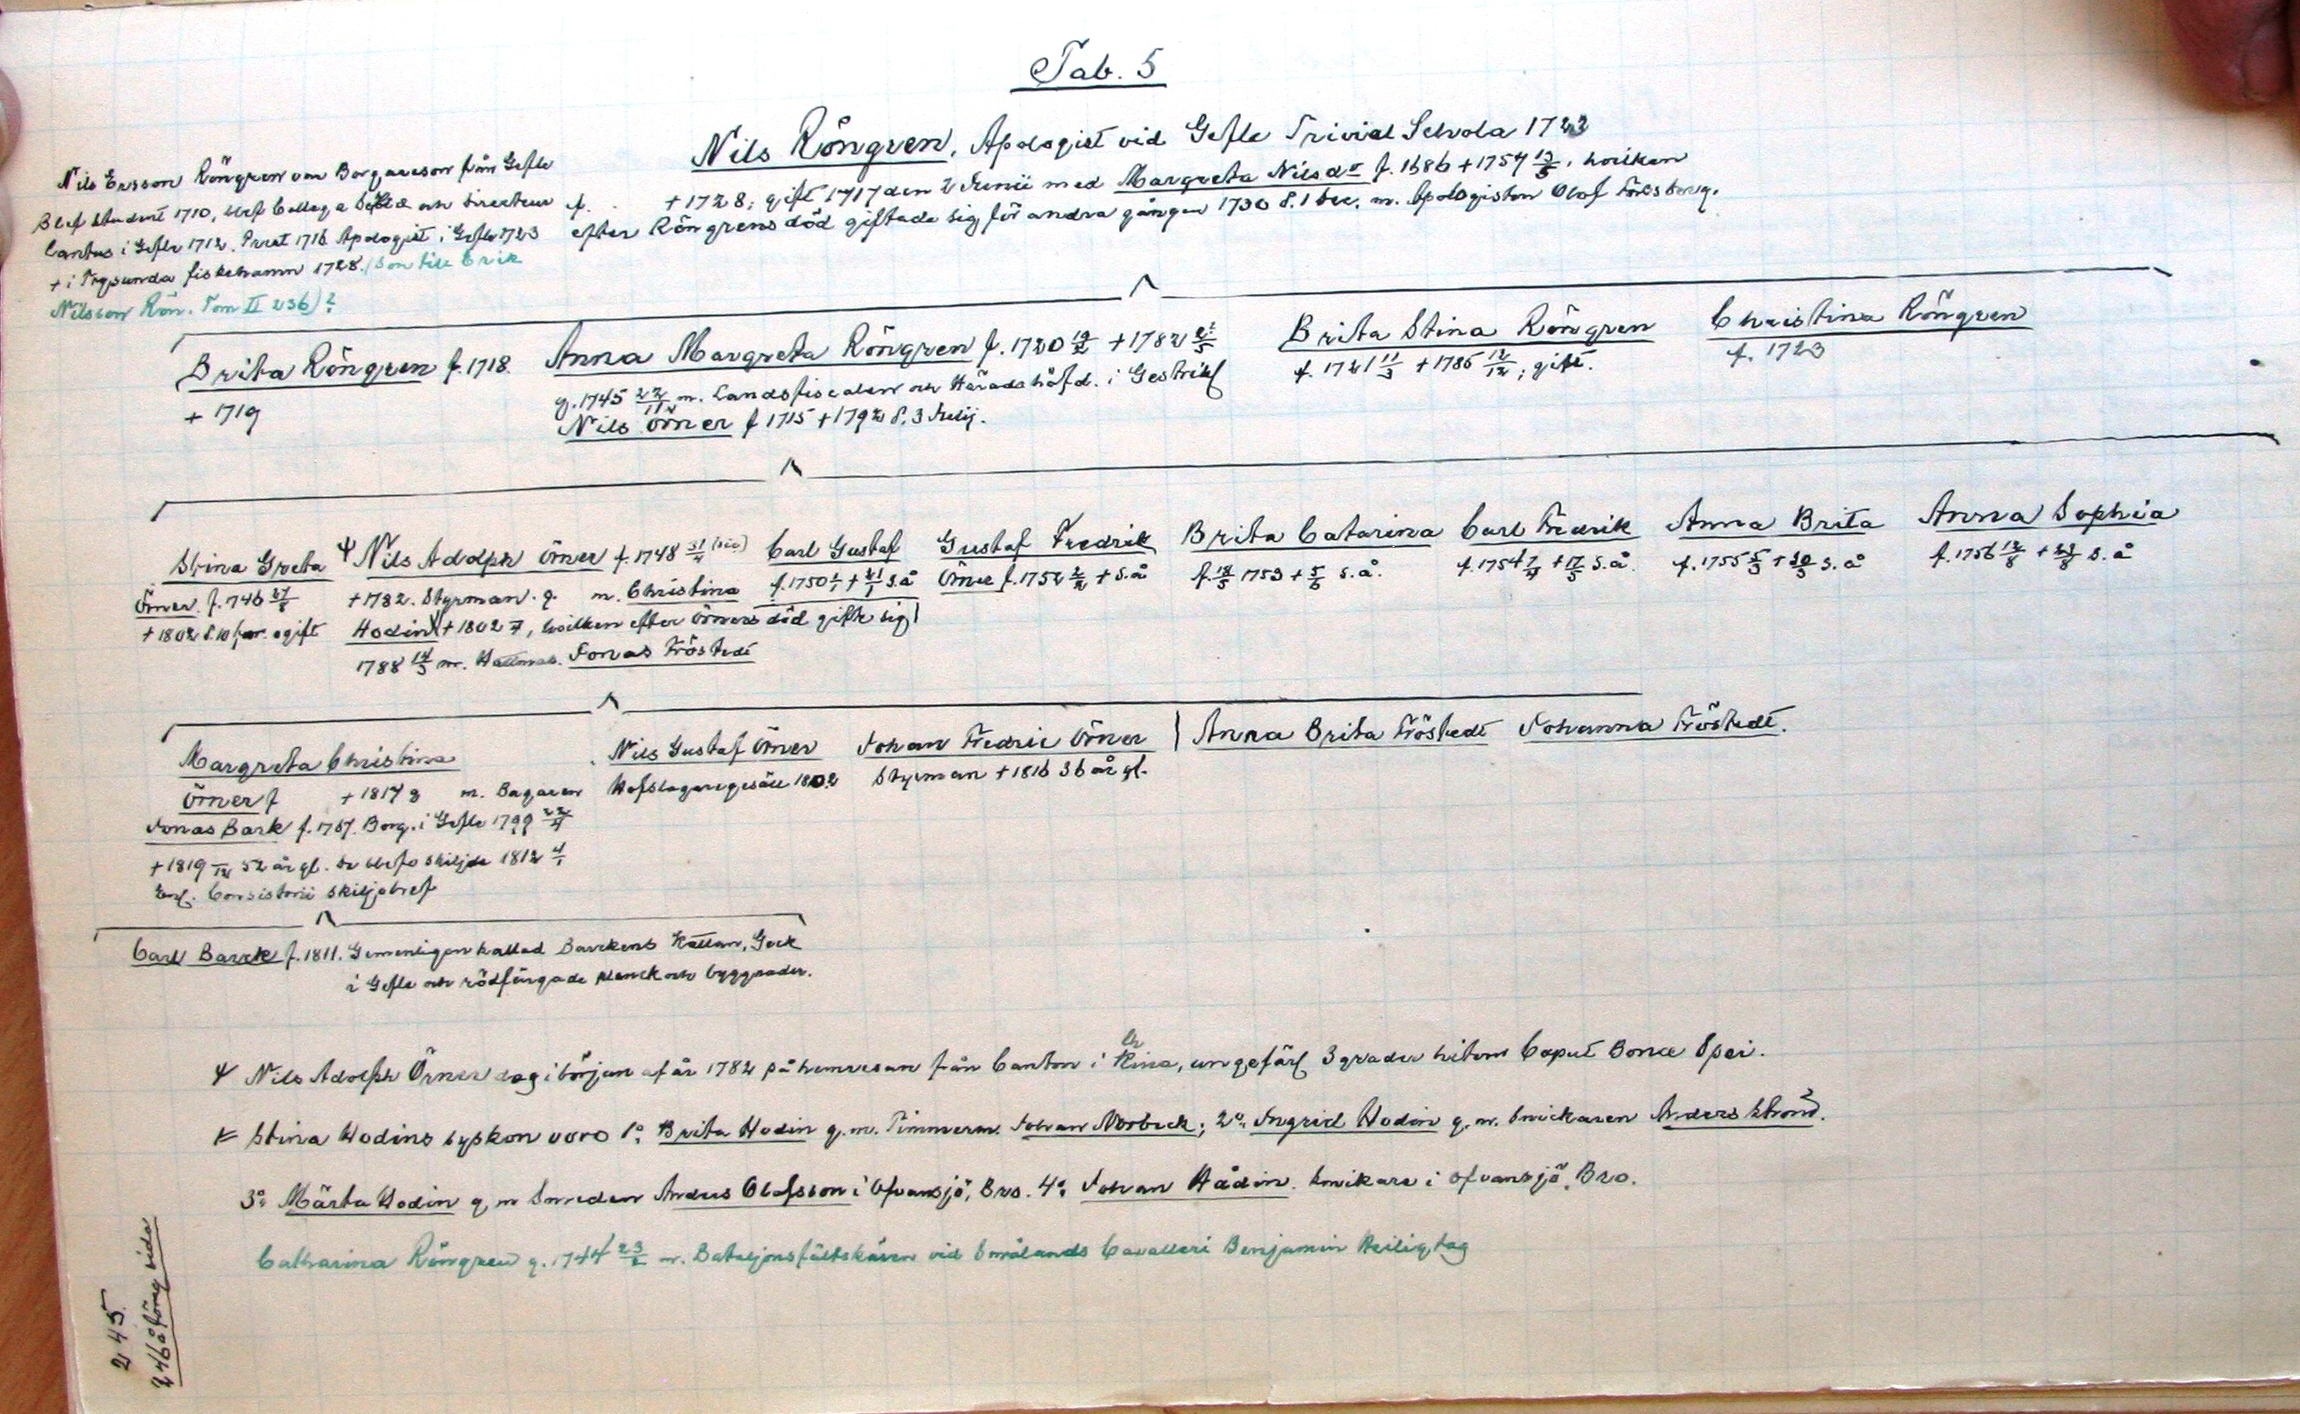 Tab. 5
Nils Röngren, Apologist vid Gefle Trivial Schola 1723
+ 1728; gift 1717 den 2 Junii med Margreta Nilsdr f. 1686 + 1754 13/5, hvilken
efter Röngrens död giftade sig för andra gången 1730 d. 1 Dec. m. Apologisten Olof Forsberg.
Nils Ersson Röngren var Borgareson från Gefle
Blef student 1710, blef Collega Scholæ och Directeur
Cantus i Gefle 1712. Prest 1716 Apologist i Gefle 1723
+ i Trysunda fiskehamn 1728. (Son till Erik
Nilsson Rön. Tom II 236)?
Brita Röngren f. 1718.
+ 1719
Anna Margreta Röngren f. 1720 19/2 + 1782 2?/5
g. 1745 22/11 m. Landsfiscalen och Häradshöfd. i Gestrikl
Nils Örner f 1715 + 1792 d. 3 Julij.
Brita Stina Röngren
f. 1721 11/3 + 1785 12/12; gift.
Christina Röngren
f. 1723
Stina Greta
Örner. f. 1746 27/8
+ 1802 d. 10 ogift
Ψ Nils Adolph Örner f. 1748 31/4 (sic)
+ 1782. Styrman. g. m. Christina
Hodin + 1802, hvilken efter Örners död gifte sig
1788 14/3 m. Jonas Fröstedt
Carl Gustaf
f. 1750 1/1 + 21/1 s.å
Gustaf Fredrik
Örner f. 1752 2/2 + s.å
Brita Catarina
f. 18/5 1753 + 5/6 s.å.
Carl Fredrik
f. 1754 7/4 + 17/5 s.å.
Anna Brita
f. 1755 5/3 + 30/3 s.å
Anna Sophia
f. 1756 12/8 + 23/8 s.å
Margreta Christina
Örner f + 1817 m. Bagaren
Jonas Bark f. 1767. Borg. i Gefle 1799 22/4
+ 1819 /12 52 år gl. De blefo skiljde 1812 4/1
Enl. Consistorii skiljobref
Nils Gustaf Örner
Hofslagaregesäll 1802
Johan Fredric Örner
Styrman + 1816 36 år gl.
Anna Brita Fröstedt Johanna Fröstedt.
Carl Barck f. 1811. Gemenligen kallad Barckens Kattan, Geck
i Gefle och rödfärgade planck och byggnader.
Ψ Nils Adolph Örner dog i början af år 1782 på hemresan från Canton i Kina, ungefärl 3 grader hitom Caput Bonæ Spei.
Ch
Stina Hodins syskon voro 1o: Brita Hodin g. m. Timmerm. Johan Norbeck; 2o: Ingrid Hodin g. m. Snickaren Anders Ström.
3o: Märta Hodin g. m Smeden Anders Olofsson i Ofvansjö, Bro. 4o: Johan Hådin. Snikare i Ofvansjö, Bro.
Catharina Röngren g. 1744 23/2 m. Bataljonsfältskären vid Smålands Cavalleri Benjamin Heiligtag
245.
246 å föreg sida